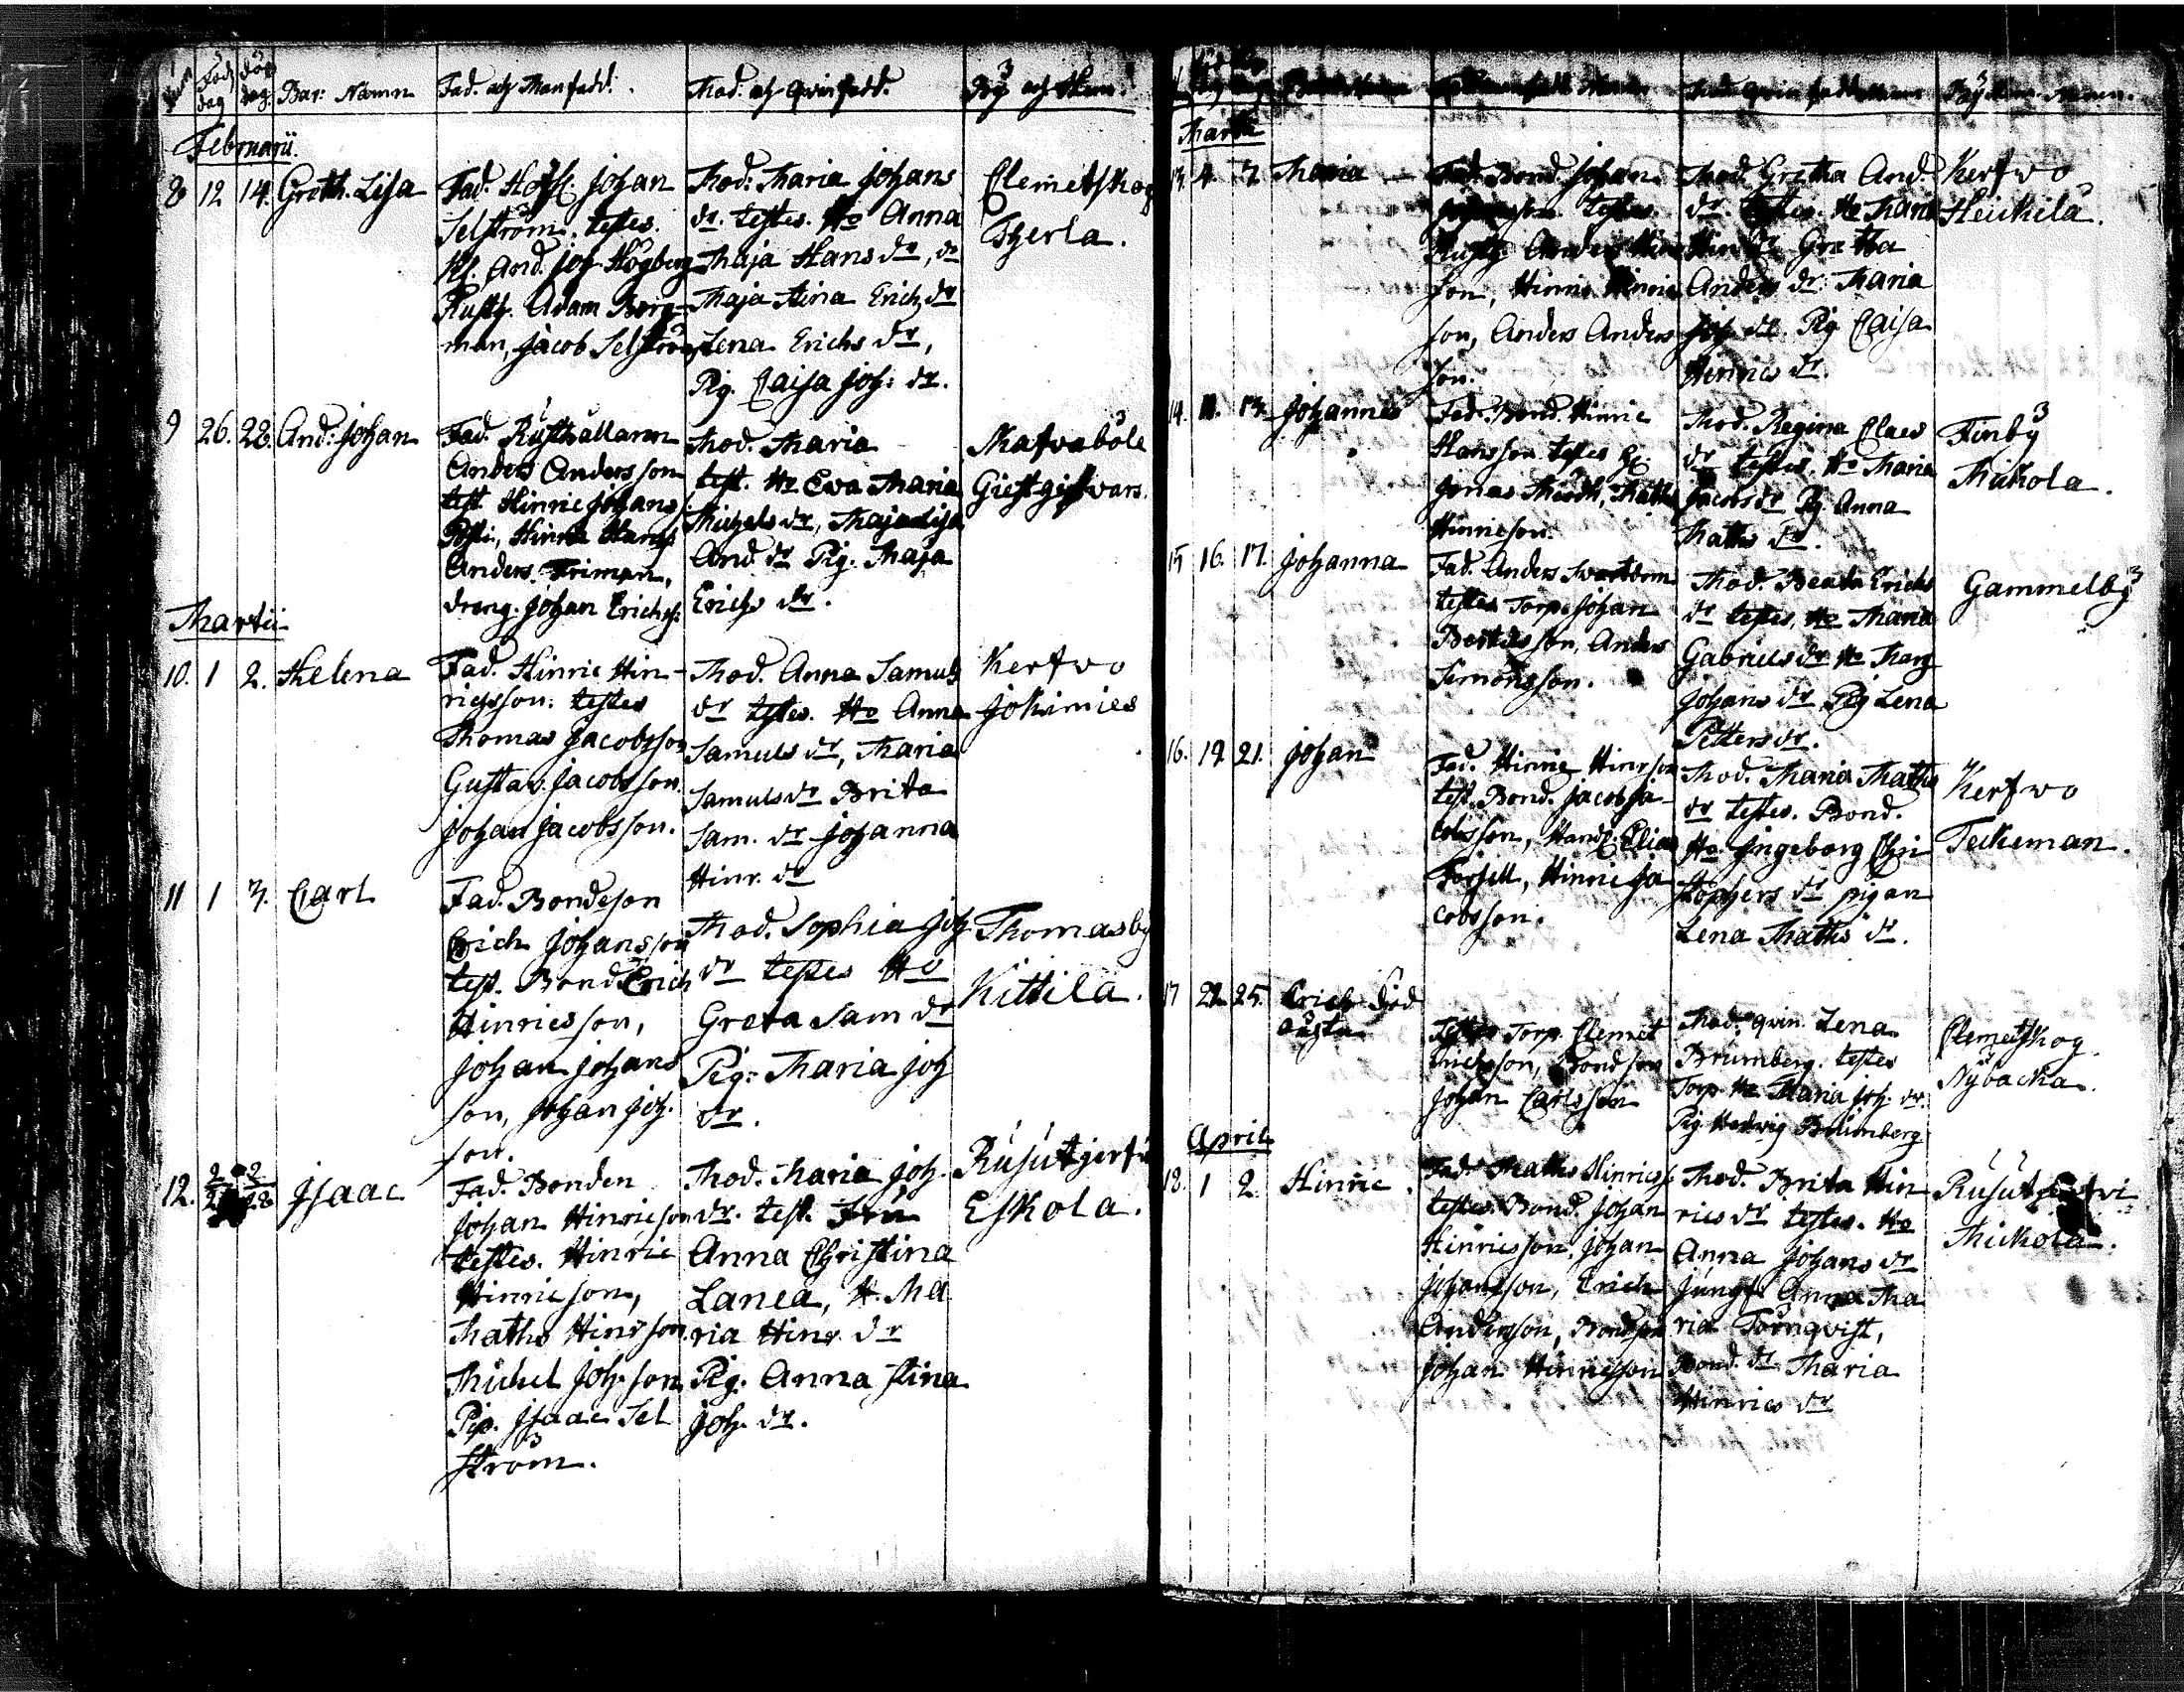 Num Föd dag döp dag. Bar: Namn Fad. och Manfadd. Mod. och qvinfadd. By och Hem.
Februarii.
8 12 14. Greth. Lisa
Fad. Johan
Selström. testes.
And. Joh. Högberg
Rusth. Adam Berg-
man, Jacob Selström
Mod: Maria Johans
dr. testes. Ho Anna
Maja Hans dr, do
Maja Stina Erichs dr
Lena Erichs dr,
Pig. Caisa Joh: dr.
Clemetskog
Tjerla.
9 26. 28. And: Johan
Fad. Rusthållaren
Anders Andersson
test Hinric Johans
Hinric Hans
Anders Friman,
dreng. Johan Erichs:
Mod. Maria
test. Ho Eva Maria
Michels dr, Maja Lisa
And. dr Pig. Maja
Erichs dr.
Skafvaböle
Giestgifvars.
Martii
10. 1 2. Helena
Fad. Hinric Hin-
richsson: testes
Thomas Jacobsson
Gustav Jacobsson
Johan Jacobsson.
Mod. Anna Samuls
dr testes. Ho Anna
Samuels dr, Maria
Samuls dr Brita
Sam. dr Johanna
Hinr. dr
Kerfvo
Jokimies
11 1 3. Carl
Fad. Bondeson
Erich Johansson
test. Bond Erich
Hinricsson,
Johan Johans
son, Johan Joh.
son.
Mod. Sophia Joh
dr testes Ho
Greta Sam dr
Pig: Maria Joh
dr.
Thomasby
Kittilä.
12. 2 28 Isaac
Fad. Bonden
Johan Hinricson
testes. Hinric
Hinricson,
Maths Hinrson
Michel Joh. son
Pip. Isaac Sel
ström.
Mod. Maria Joh.
dr. test. Fru
Anna Christina
Lanea, H. Ma
ria Hinr. dr
Pig. Anna Stina
Joh. dr.
Rusutjerfvi
Eskola.
Martii
13. 4. 7. Maria
Fad. Bond. Johan
testes.
Rusth. Anders Hinric
son, Hinric Hinric
son, Anders Anders
son.
Mod. Gretha And.
dr. testes. Ho Maria
Hin dr Gretha
Anders dr. Maria
Joh. dr. Pig. Caisa
Hinrics dr.
Kerfvo
Heickilä.
14. 11. 13. Johannes
Fad. Bond. Hinric
Hansson testes
Jonas Maths
Hinricson.
Mod. Regina Claes
dr testes. Ho Maria
Jacobs dr Pig. Anna
Maths dr.
Finby
Mickola.
15 16. 17. Johanna
Fad. Anders Svartström
testes Torp. Johan
Bertilsson, Anders
Simonsson.
Mod. Beata Erichs
dr testes, Ho Maria
Gabriels dr Ho Marg
Johans dr Pig Lena
Petters dr.
Gammelby
16. 19 21. Johan
Fad. Hinric Hinrson
test. Bond. Jacob Ja-
cobsson, Handl. Elias
Forsell, Hinric Ja
cobsson.
Mod. Maria Maths
dr testes. Bond.
Ho. Ingeborg Chri
stophers dr pigan
Lena Maths dr.
Kerfvo
Teckeman.
17 22. 25. Erich död
oägta
Testes Torp. Clemet
Erichsson, Bondson
Johan Carlsson
Mod. qvin. Lena
Brumberg. testes
Torp. Ho. Maria Joh. dr.
Pig Hedvig Brumberg
Clemetskog.
Nybacka.
April
18. 1 2. Hinric.
Fad. Maths Hinrics.
testes. Bond. Johan
Hinricsson, Johan
Johansson, Erich
Andersson, Bondson
Johan Hinricsson
Mod. Brita Hin
rics dr testes. Ho
Anna Johans dr
Jungf. Anna Ma
ria Törnqvist,
Bond. dr Maria
Hinrics dr
Rusutjerfvi
Mickola.